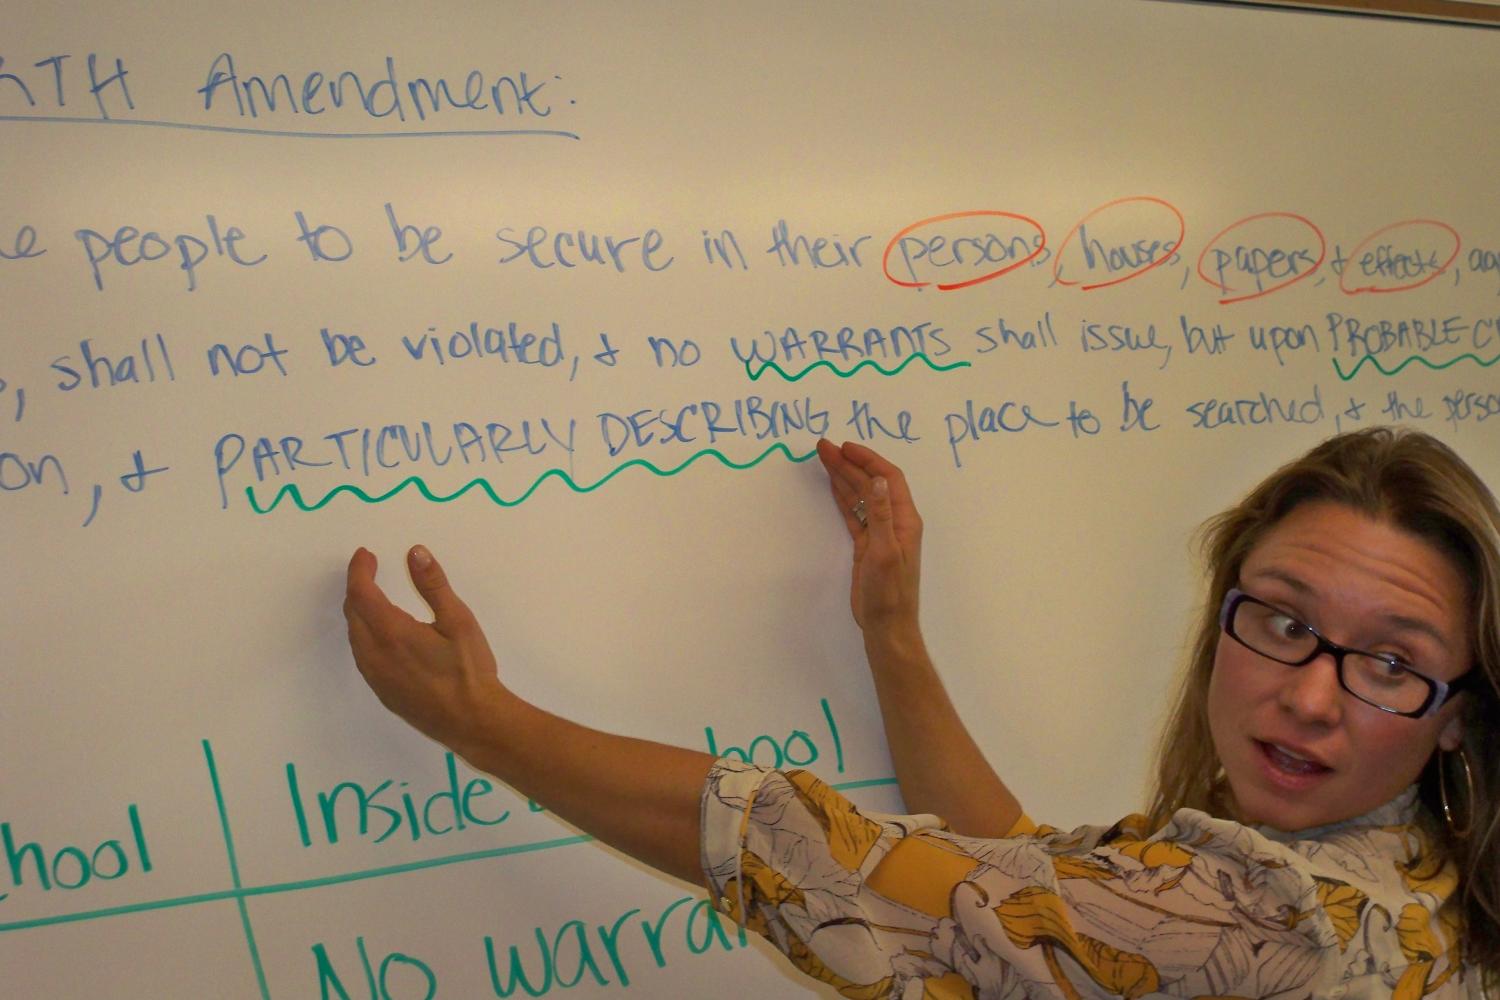 RTH Amendment:
people to be secure in their persons, houses, papers, + effects,
, shall not be violated, + no WARRANTS shall issue, but upon PROBABLE C
on, + PARTICULARLY DESCRIBING the place to be searched, + the perso
hool Inside hool
No warra